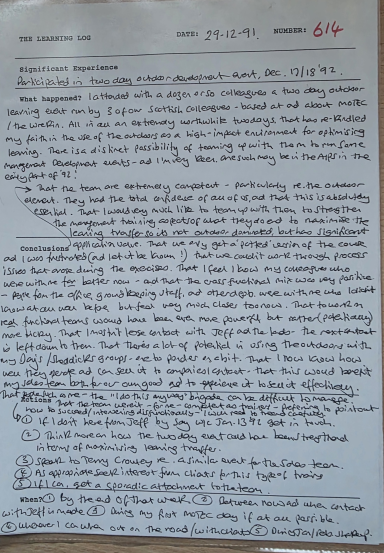 THE LEARNING LOG DATE: 29-12-91. NUMBER: 614
Significant Experience
Participated in two day outdoor development event, Dec. 17/18 '92.
What happened? I attended with a dozen or so colleagues a two day outdoor
learning event run by 3 of our Scottish colleagues - based at and about
/ the Wrekin. All in all an extremely worthwhile two days, that has re-kindled
my faith in the use of the outdoors as a high-impact environment for optimising
learning. There is a distinct possibility of teaming up with them to run some
management Development events - and I'm very keen. One such may be the in the
early part of '92!
→ That the team are extremely competent - particularly re. the outdoor
element. They had the total confidence of all of us, and that this is absolutely
essential. That I would very much like to team up with them to strengthen
the management training aspects of what they do and to maximise the
learning transfer so its not outdoor dominated, but has significant
Conclusions application value. That we only got a potted version of the course
and I was frustrated (and let it be known!) that we couldn't work through process
issues that arose during the exercises. That I feel I know my colleagues who
were with me far better now - and that the cross functional mix was very positive
- people from the office, ground keeping staff, and other depts were with me who I didn't
know at all well before, but feel very much closer to now. That to work in
real functional teams would have been even more powerful but (potentially)
more tricky. That I must not lose contact with Jeff and the lads - the next contact
is left down to them. That there's a lot of potential in using the outdoors with
my groups - one to ponder on a bit. That I now know how
well they operate and can sell it to companies/contacts - that this would benefit
my sales team both for our own good and to experience it to sell it effectively.
That people like me - the "I do this anyway" brigade can be difficult to manage!
Actions That the team weren't competent as trainers - preferring to point out
how to succeed/intervening
① If I don't here from Jeff by say w/c Jan. 13 '92 get in touch.
② Think more on how the two day event could have been strengthened
in terms of maximising learning transfer.
③ Speak to Terry re. a similar event for the Sales team.
④ As appropriate seek interest from clients for this type of training
⑤ If I can, get a sporadic attachment to the team.
When? ① By the end of that week ② Between now and when contact
with Jeff is made ③ During my first day if at all possible.
④ Whenever I can when out on the road/with clients ⑤ During Jan/Feb